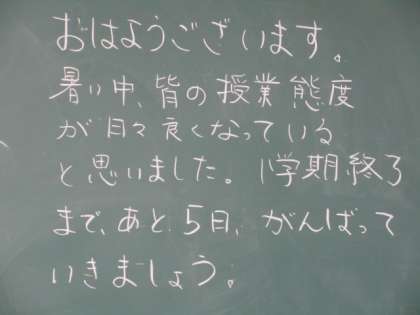 おはようございます。
暑い中、皆の授業態度
が日々良くなっている
と思いました。1学期終了
まで、あと5日、がんばって
いきましょう。